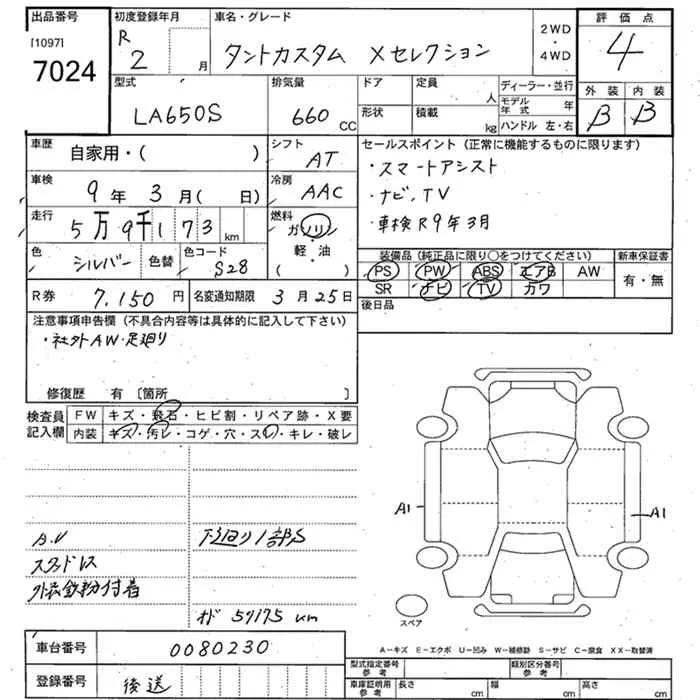 出品番号
[1097]
7024
初度登録年月
R 2 月
車名・グレード
タントカスタム Xセレクション
2WD
・
4WD
評価点
4
型式
LA650S
排気量
660 CC
ドア
形状
定員 人
積載 kg
ディーラー・並行
モデル年式 年
ハンドル 左・右
外装 内装
B B
車歴
自家用・( )
シフト
AT
セールスポイント (正常に機能するものに限ります)
・スマートアシスト
・ナビ、TV
・車検R9年3月
車検
9年 3月( 日)
冷房
AAC
走行
5万9千173 km
燃料
ガソリン
・
軽・油
( )
色
シルバー
色替
色コード
S28
装備品(純正品に限り○をつけてください)
PS PW ABS エアB AW
SR ナビ TV カワ
新車保証書
有・無
R券 7,150 円
名変通知期限 3月25日
後日品
注意事項申告欄 (不具合内容等は具体的に記入して下さい)
・社外AW・足廻り
修復歴 有 [箇所 ]
検査員
記入欄
FW キズ・飛石・ヒビ割・リペア跡・X要
内装 キズ・汚レ・コゲ・穴・スレ・キレ・破レ
スタッドレス
外装鉄粉付着
下廻り1部S
59175 km
A1
A1
スペア
A-キズ E-エクボ U-凹み W-補修跡 S-サビ C-腐食 XX-取替済
車台番号 0080230
登録番号 後送
型式指定番号
参考
類別区分番号
参考
車庫証明用
参考
長さ cm 幅 cm 高さ cm